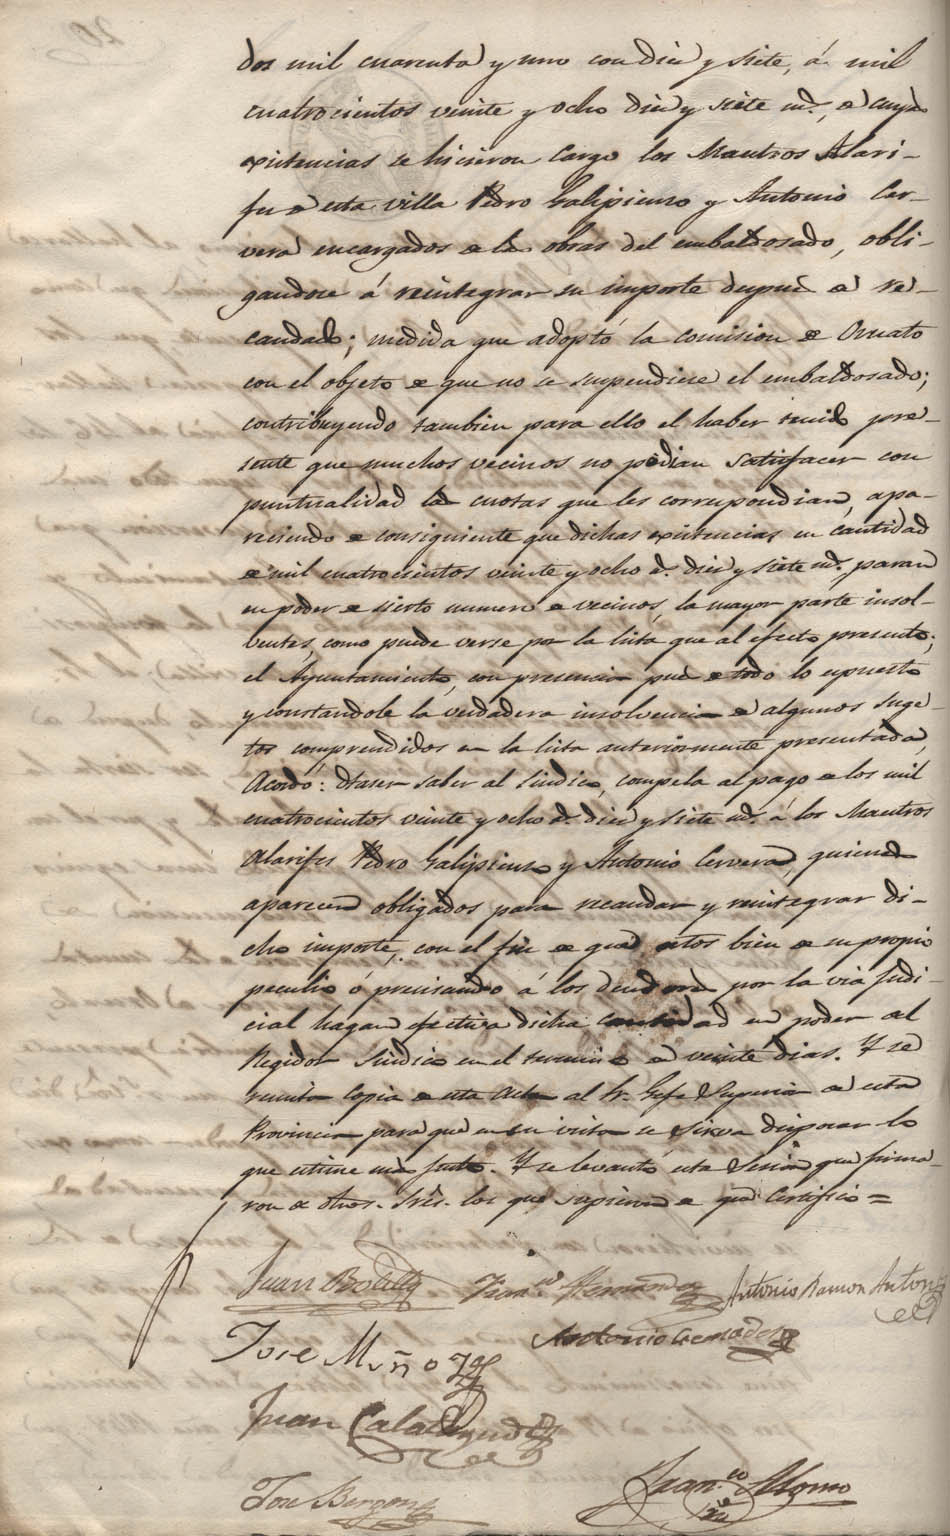 dos mil cuarenta y uno con diez y siete, á mil
cuatrocientos veinte y ocho diez y siete ms., de cuyas
existencias se hicieron cargo los Maestros Alari-
fes de esta villa Pedro Galipienzo y Antonio Cer-
vera encargados de las obras del embaldosado, obli-
gandose á reintegrar su importe despues de re-
caudado; medida que adoptó la comision de Ornato
con el objeto de que no se suspendiese el embaldosado;
contribuyendo tambien para ello el haber tenido pre-
sente que muchos vecinos no podian satisfacer con
puntualidad las cuotas que les correspondian, apa-
reciendo de consiguiente que dichas existencias en cantidad
de mil cuatrocientos veinte y ocho rs. diez y siete ms. paran
en poder de cierto numero de vecinos, la mayor parte insol-
ventes, como puede verse por la lista que al efecto presento;
el Ayuntamiento, con presencia pues de todo lo espuesto
y constandole la verdadera insolvencia de algunos suge-
tos comprendidos en la lista anteriormente presentada,
Acordó: Hacer saber al Sindico, compela al pago de los mil
cuatrocientos veinte y ocho rs. diez y siete ms. á los Maestros
Alarifes Pedro Galipienzo y Antonio Cervera, quienes
aparecen obligados para recaudar y reintegrar di-
cho importe, con el fin de que estos bien de su propio
peculio ó precisando á los deudores por la via judi-
cial hagan efectiva dicha cantidad en poder del
Regidor Sindico en el termino de veinte dias. Y se
remita copia de esta Acta al Sr. Gefe Superior de esta
Provincia para que en su vista se sirva disponer lo
que estime mas justo. Y se levantó esta Sesion que firma-
ron de dhos. Sres. los que supieron de que Certifico =
Juan Botella Franco. Hernandez Antonio Ramon Antón
Antonio
Jose Muñoz
Juan Calatayud
Jose Bergon
Franco. Alonso